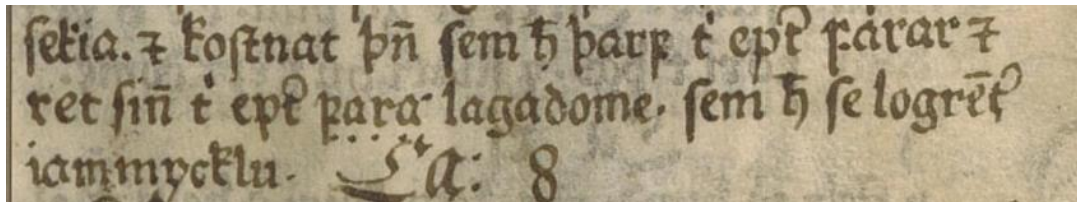 sekia. ⁊ kostnat þn̄ sem ħ þarf t͛ ept͛ fárar ⁊
ret sin̄ t͛ ept͛ fara lagadome. sem ħ se logrēt͛
iammycklu. Ca: 8